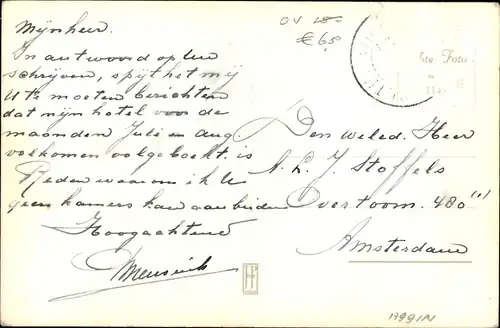 Mijnheer.
In antwoord op Uw
schrijven, spijt het mij
U te moeten berichten
dat mijn hotel voor de
maanden Juli en aug.
volkomen volgeboekt is
Reden waarom ik U
geen kamers kan aanbieden
Hoogachtend
Den Weled. Heer
A. L. J. Stoffels
Overtoom. 480
Amsterdam
OV
€ 6,5
Foto